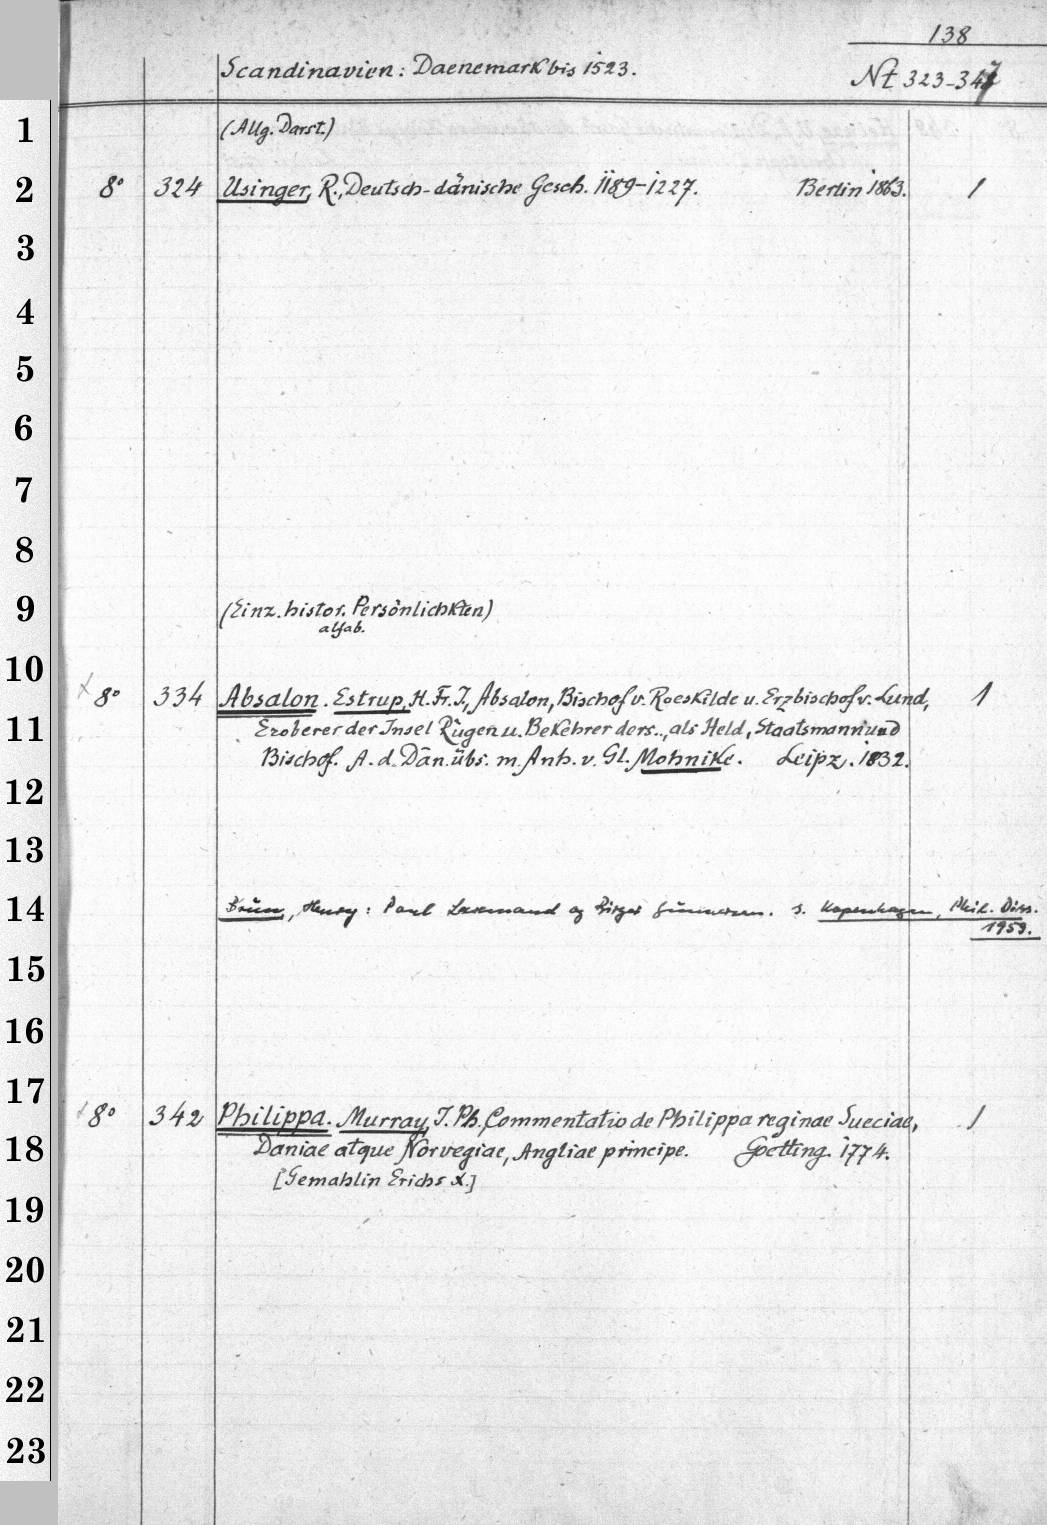 138
Scandinavien: Daenemark bis 1523.
Nt 323-347
1 (Allg. Darst.)
2 8° 324 Usinger, R., Deutsch-dänische Gesch. 1189-1227. Berlin 1863. 1
3
4
5
6
7
8
9 (Einz. histor. Persönlichkten)
alfab.
10 8° 334 Absalon. Estrup, H. Fr. J., Absalon, Bischof v. Roeskilde u. Erzbischof v. Lund, 1
11 Eroberer der Insel Rügen u. Bekehrer ders., als Held, Staatsmann und
Bischof. A. d. Dän. übs. m. Anh. v. Gl. Mohnike. Leipz. 1832.
12
13
14 Bruun, Henry: Poul Laxmand og Birger Gunnersen. s. Kopenhagen, Phil. Diss.
1959.
15
16
17 8° 342 Philippa. Murray, J. Ph. Commentatio de Philippa reginae Sueciae, 1
18 Daniae atque Norvegiae, Angliae principe. Goetting. 1774.
[Gemahlin Erichs X.]
19
20
21
22
23